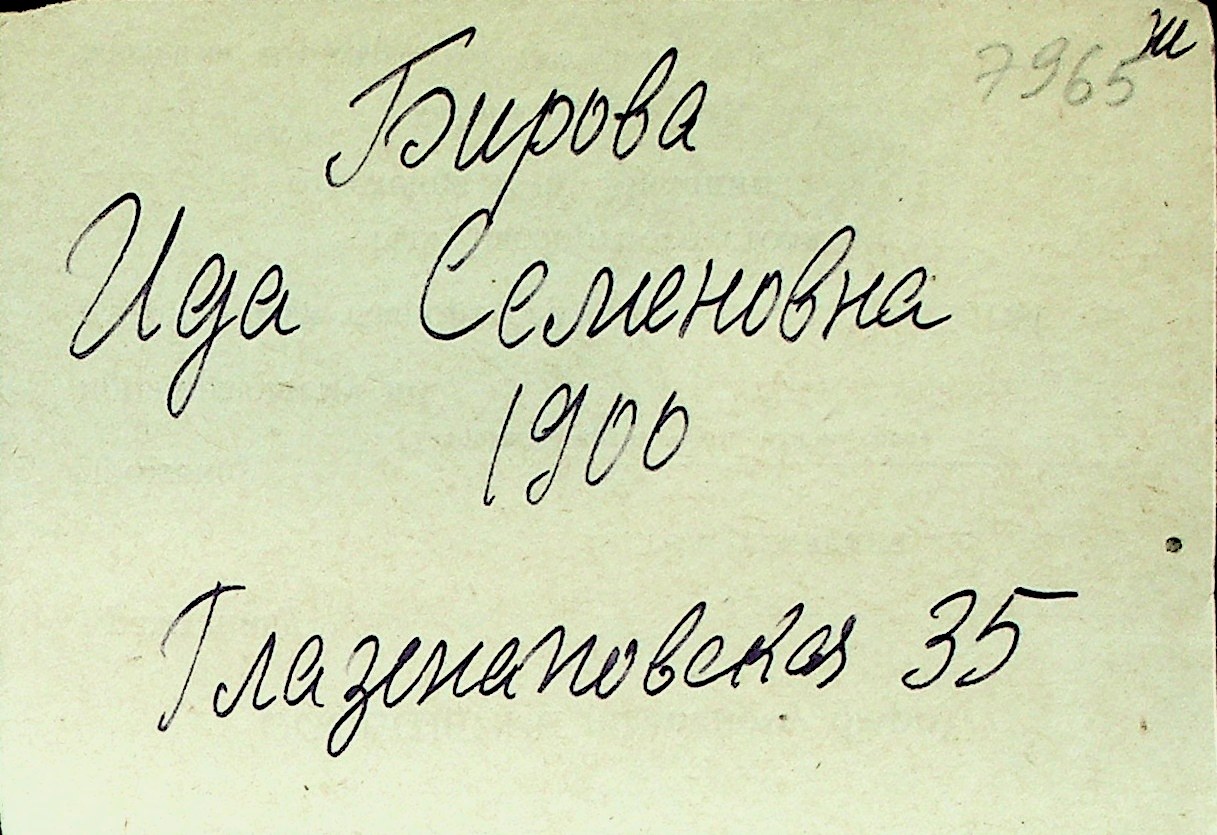 ж
7965
Бирова
Ида Семеновна
1900
Глазенаповская 35